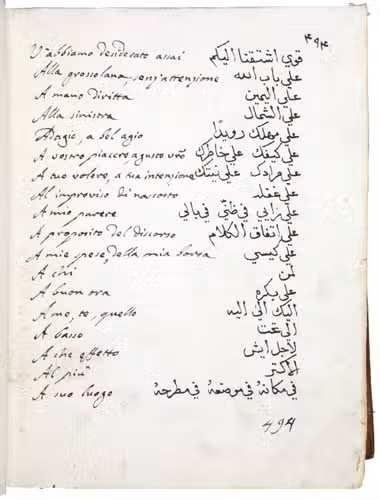 ٤٩٤
V'abbiamo desiderato assai قوي اشتقنا اليكم
Alla grossolana, senz'attenzione علي باب الله
A mano diritta علي اليمين
Alla sinistra علي الشمال
Adagio, a bel agio علي مهلك رويدًا
A vostro piacere a gusto vr̃o علي كيفك علي خاطرك
A tuo volere, a tua intenzione علي مرادك علي نيتك
Al improviso di nascosto علي غفله
A mio parere علي رايي في ظنّي في بالي
A proposito del discorso علي اتفاق الكلام
A mie spese, della mia borsa علي كيسي
A chi لمن
A buon ora علي بكره
A me, te, quello اليك الي اليه
A basso الي تحت
A che effetto لاجل ايش
Al più الاكثر
A suo luogo في مكانهُ في موضعهُ في مطرحهُ
494